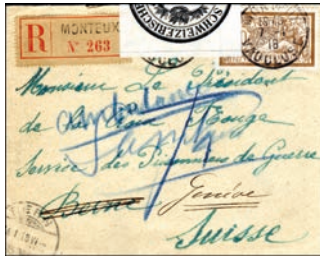 MONTEUX
R N° 263
SCHWEIZERISCHE
VAUCLUSE
Monsieur Le Président
de la Croix Rouge
Service des Prisonniers de Guerre
Berne Genève
Suisse